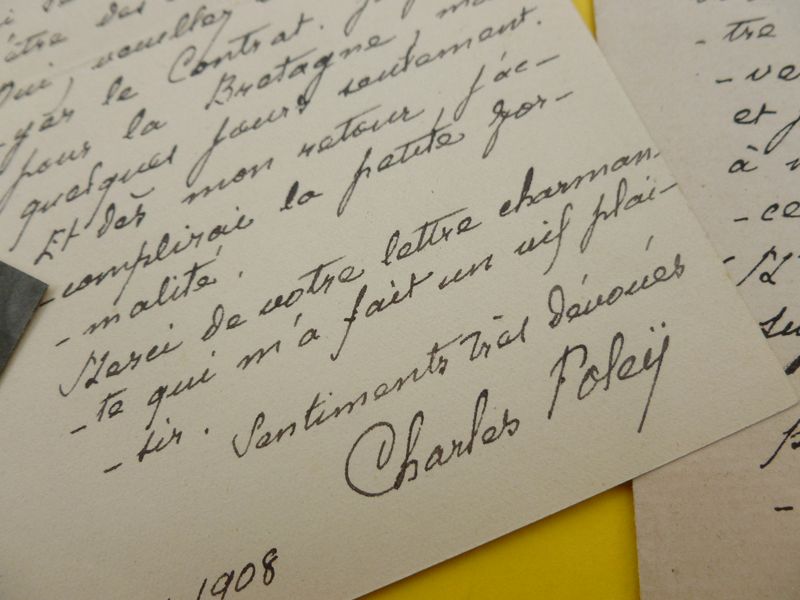 être des
Oui, veuillez
-yer le Contrat.
pour la Bretagne,
quelques jours seulement.
Et dès mon retour, j'ac-
-complirai la petite for-
-malité.
Merci de votre lettre charman-
-te qui m'a fait un vif plai-
-sir. Sentiments très dévoués
Charles Foleÿ
1908
-tre
-ve
et
à
-ce